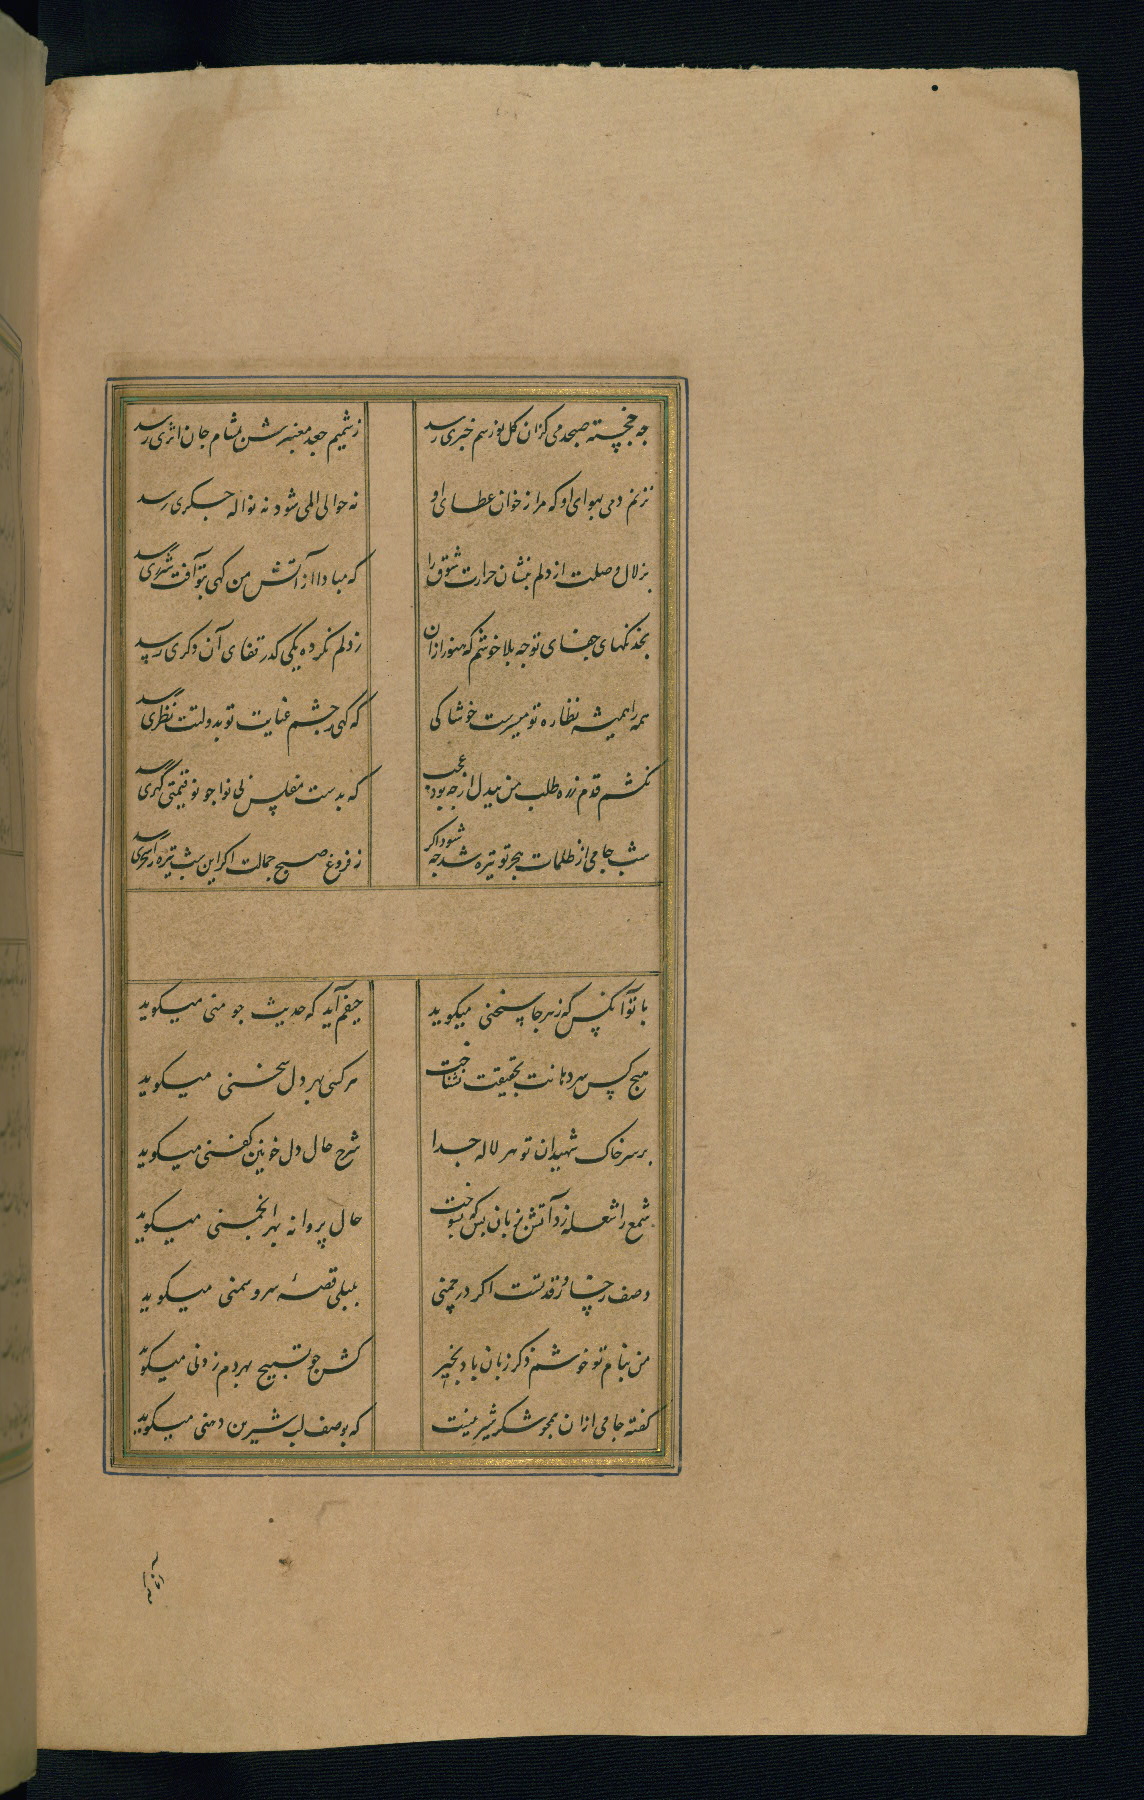 چه خجسته صبحدمی کزان گل نورسم خبری رسد
ز شمیم جعد معنبرش بمشام جان اثری رسد
نزنم دمی بهوای او که مرا ز خوان عطای او
نه حوالی المی شود نه نواله جگری رسد
بزلال وصلت از دلم بنشان حرارت شوق را
که مبادا از آتش من کهی بتو آفت شرری رسد
بخدنکهای جفای تو چه بلا خوشم که هنوز ازان
ز دلم نکرده یکی گذر ز قفای آن دکری رسد
همه را همیشه نظاره تو میسرست خوشا کی
که کهی ز چشم عنایت تو بدولتت نظری رسد
نکشم قدم ز ره طلب من بیدل ار چه بود عجب
که بدست مفلس بی نوا چو تو قیمتی گهری رسد
شب جامی از ظلمات هجر تو تیره شد چه شود اگر
ز فروغ صبح جمالت اگر این شب تیره را سحری رسد
با تو آنکس که ز هر جا سخنی میکوید
حیفم آید که حدیث چو منی میکوید
هیچ کس سر دهانت بحقیقت نشناخت
هر کسی بهر دل سخنی میکوید
بر سر خاک شهیدان تو هر لاله جدا
شرح حال دل خونین کفنی میکوید
شمع را شعله زد آتش بزبان بس که بسوخت
حال پروانه بهر انجمنی میکوید
وصف رخسار و قد تست اگر در چمنی
بلبلی قصهٔ سرو سمنی میکوید
من بنام تو خوشم ذکر زبان باد بخیر
کش چو تسبیح بهر دم زدنی میکوید
گفته جامی ازان همچو شکر شیرینست
که بوصف لب شیرین دهنی میکوید